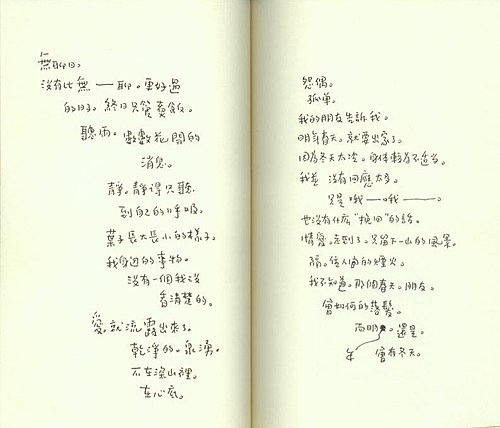 無聊日。
沒有比無——聊。更好過
的日子。終日只管煮飯。
聽雨。數數花開的
消息。
靜。靜得只聽
到自己的呼吸。
葉子長大長小的樣子。
我身邊的事物。
沒有一個我沒
看清楚的。
愛。就流露出來了。
乾淨的。泉湧。
不在深山裡。
在心底。
怨偶。
孤單。
我的朋友告訴我。
明年春天。就要出家了。
因為冬天太冷。身体較為不適當。
我並沒有回應太多。
只是哦——哦——。
也沒有什麼"挽回"的話。
情愛。走到了。只留下一山的風景。
隔。住人間的煙火。
我不知道。那個春天。朋友。
會如何的落髮。
而明。還是。
年 會有冬天。